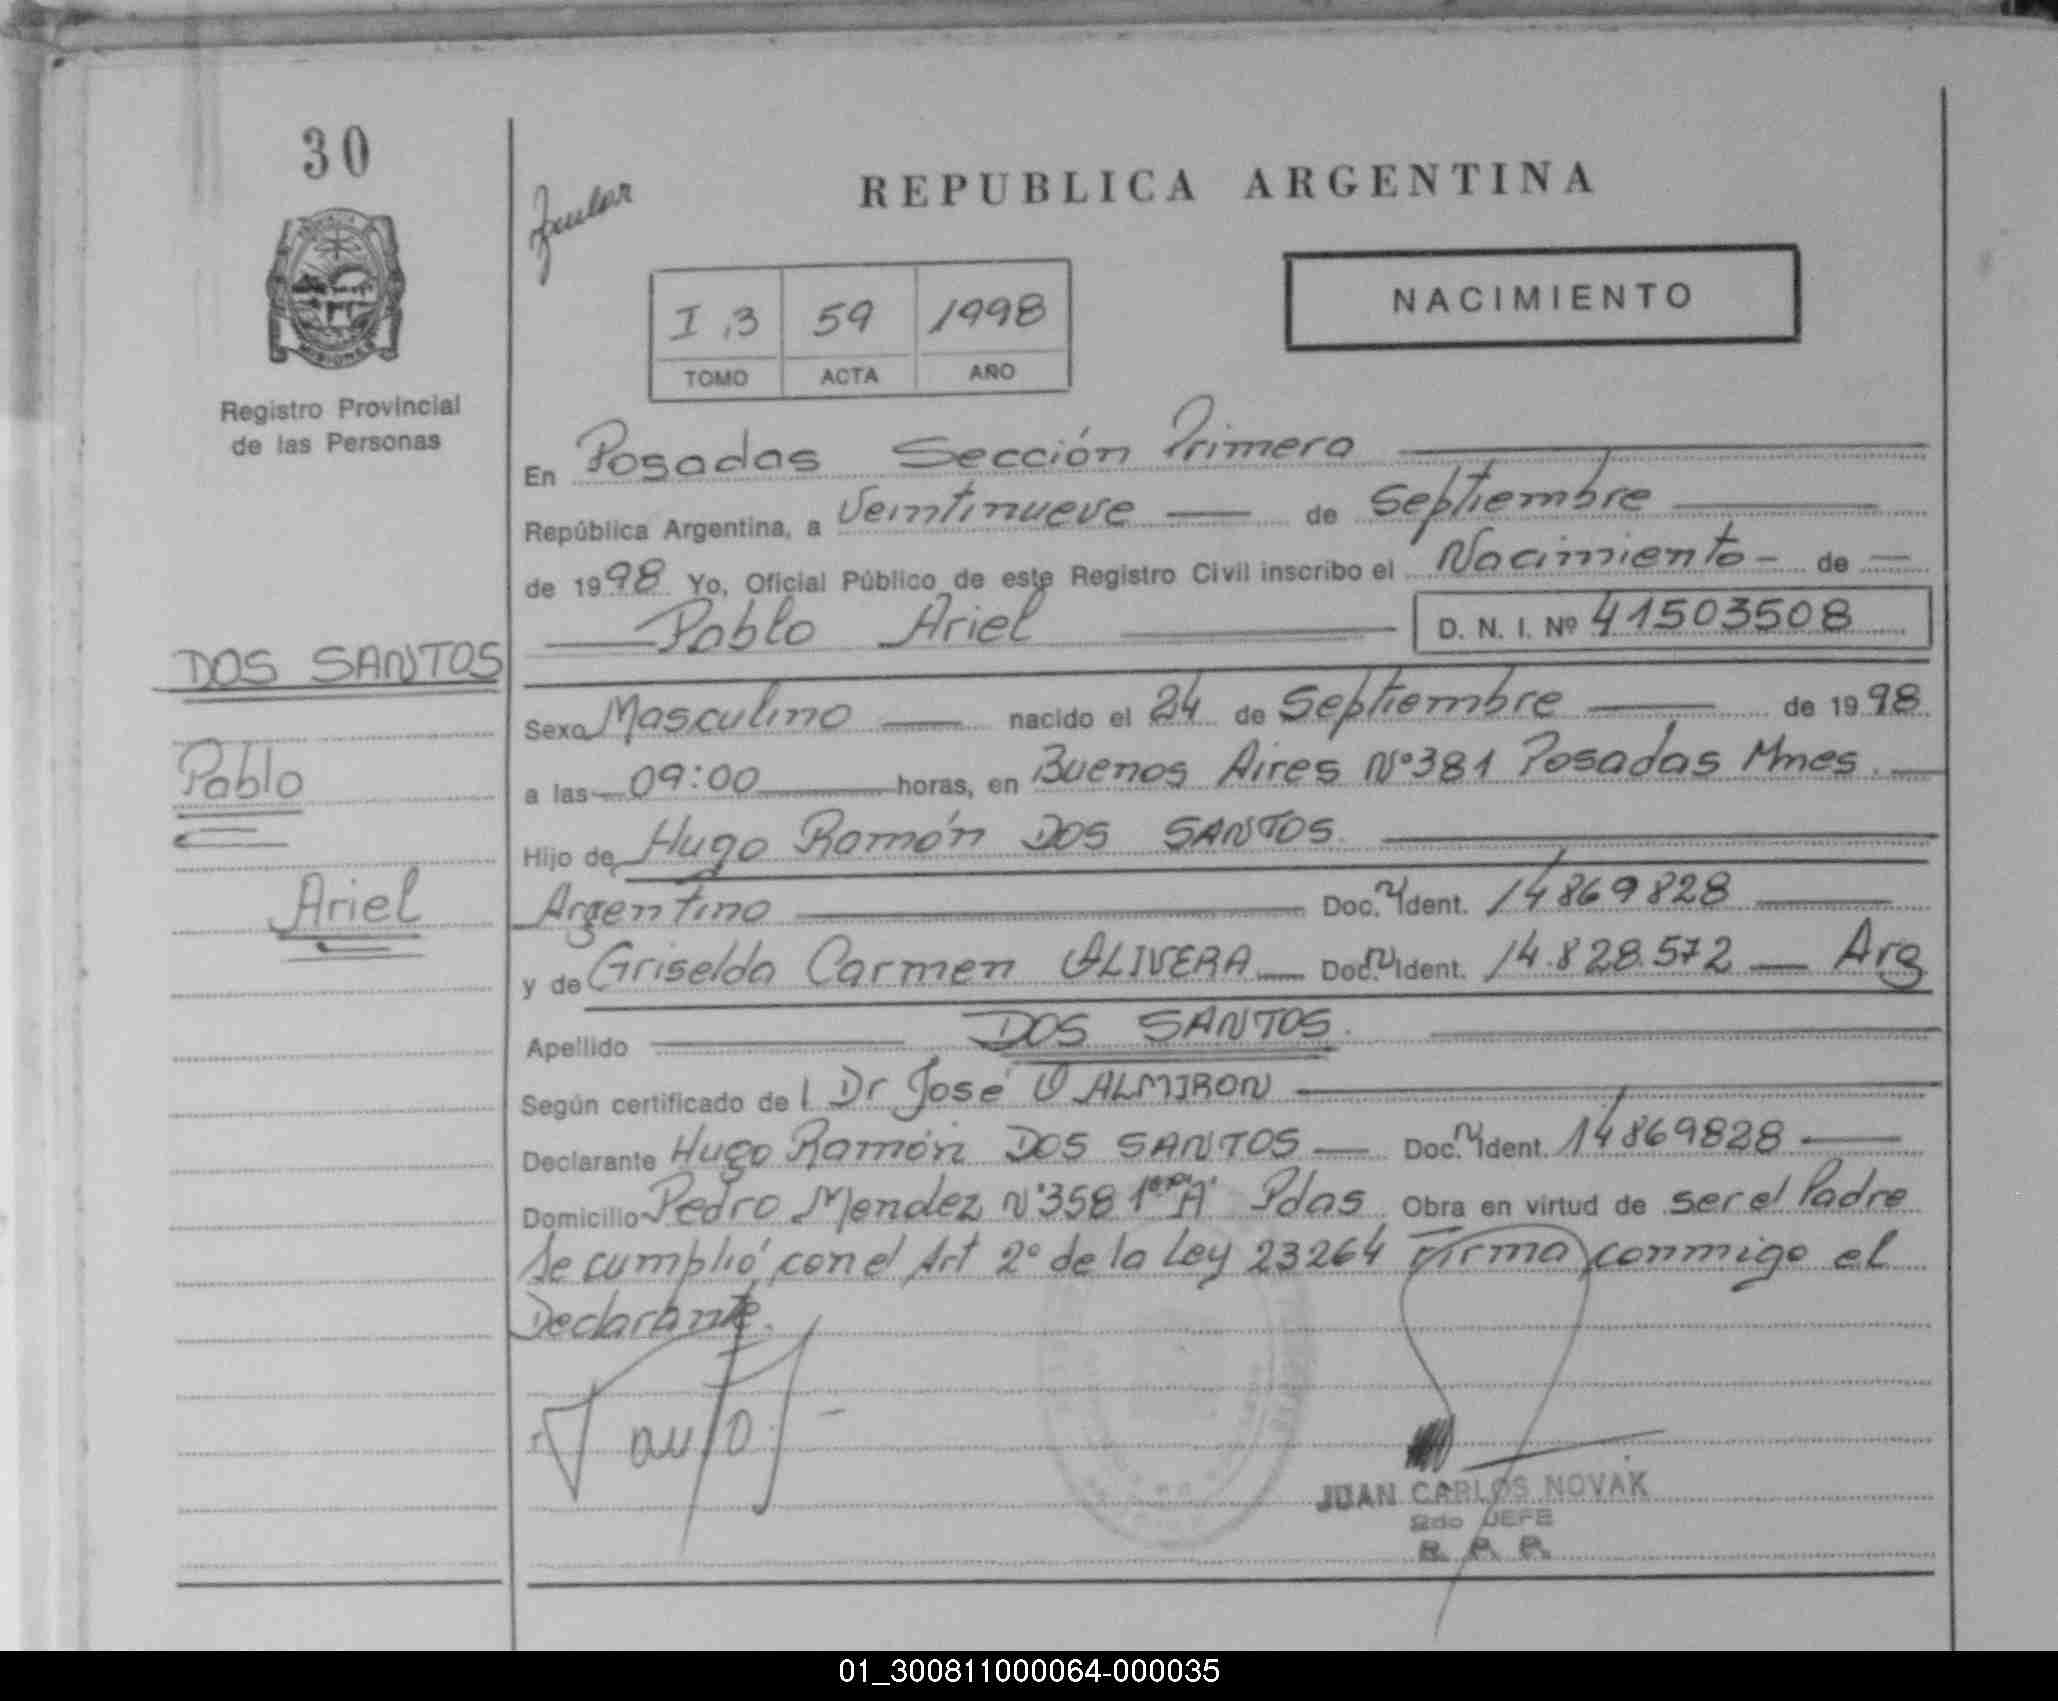 30
REPUBLICA ARGENTINA
I 3 59 1998
TOMO ACTA AÑO
NACIMIENTO
MISIONES
Registro Provincial
de las Personas
En Posadas Sección Primera
República Argentina, a Veintinueve de Septiembre
de 1998 Yo, Oficial Público de este Registro Civil inscribo el Nacimiento - de
Pablo Ariel D. N. I. Nº 41503508
DOS SANTOS
Pablo
Ariel
Sexo Masculino nacido el 24 de Septiembre de 1998
a las 09:00 horas, en Buenos Aires Nº 381 Posadas Mnes.
Hijo de Hugo Ramón DOS SANTOS.
Argentino Doc. Ident. 14869828
y de Griselda Carmen OLIVERA Doc. Ident. 14.828.572 Arg
Apellido DOS SANTOS.
Según certificado de l Dr José O ALMIRON
Declarante Hugo Ramón DOS SANTOS Doc. Ident. 14869828
Domicilio Pedro Mendez Nº 358 1º "A" Pdas Obra en virtud de ser el Padre
Se cumplió con el Art 2º de la Ley 23264 Firma conmigo el
Declarante.
JUAN CARLOS NOVAK
2do JEFE
R. P. P.
01_300811000064-000035